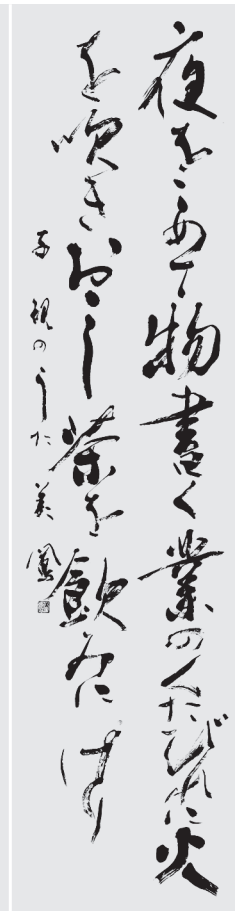 夜をこめて物書く業のくたびれに火
を吹きおこし茶を飲みにけり
子規のうた 美鳳